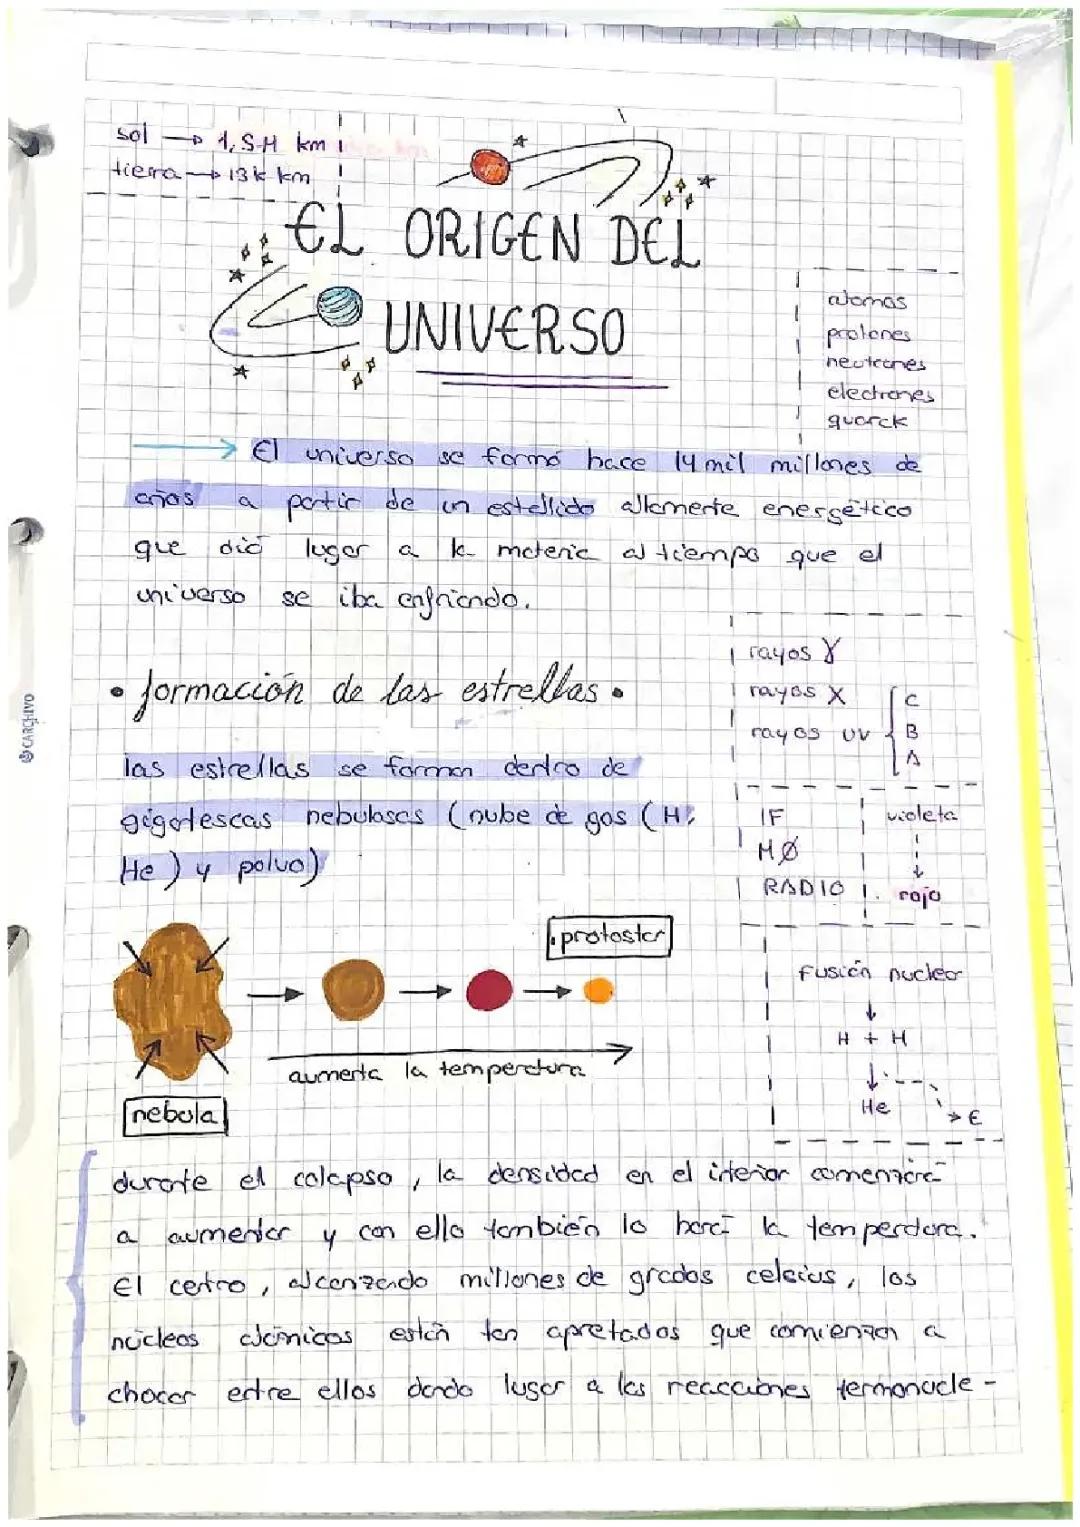 sol → 1,5 M km
tierra → 13 k km
EL ORIGEN DEL
UNIVERSO
atomos
protones
neutrones
electrones
quarck
→ El universo se formó hace 14 mil millones de
años a partir de un estallido altamente energético
que dió lugar a la materia al tiempo que el
universo se iba enfriando.
• formación de las estrellas •
las estrellas se forman dentro de
gigantescas nebulosas (nube de gas (H,
He) y polvo)
rayos γ
rayos X
rayos UV { C
B
A
IF
MØ
RADIO
violeta
↓
rojo
.protostar
nebula
aumenta la temperatura
Fusión nuclear
↓
H + H
↓
He → E
durante el colapso, la densidad en el interior comenzará
a aumentar y con ello también lo hará la temperatura.
El centro, alcanzando millones de grados celsius, los
núcleos atómicos están tan apretados que comienzan a
chocar entre ellos dando lugar a las reacciones termonucle-
CARCHIVO